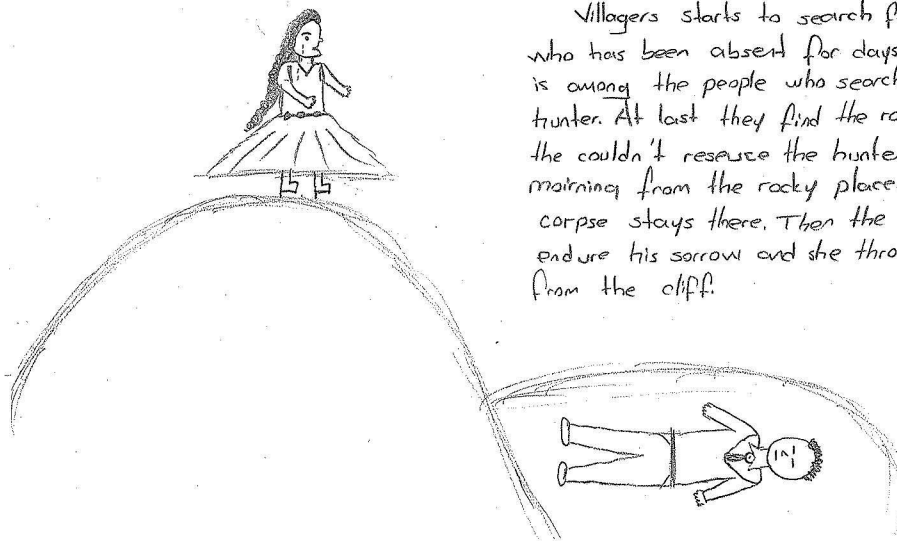 Villagers starts to search f
who has been absent for days
is among the people who search
hunter. At last they find the ro
the couldn't reseuce the hunte
mairning from the rocky place
corpse stays there. Then the
endure his sorrow and she thro
from the cliff.